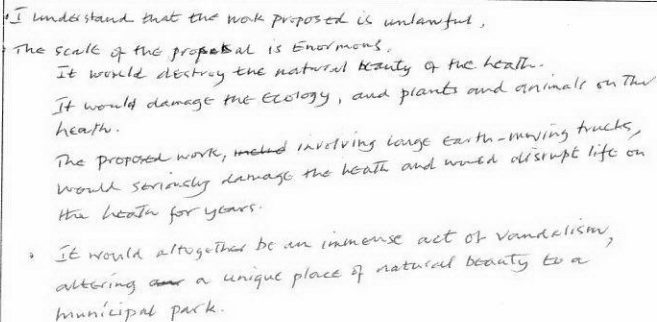 • I understand that the work proposed is unlawful,
• The scale of the proposal is Enormous.
It would destroy the natural beauty of the heath.
It would damage the Ecology, and plants and animals on the
heath.
The proposed work, involving large Earth-moving trucks,
would seriously damage the heath and would disrupt life on
the heath for years.
• It would altogether be an immense act of vandalism,
altering a unique place of natural beauty to a
municipal park.